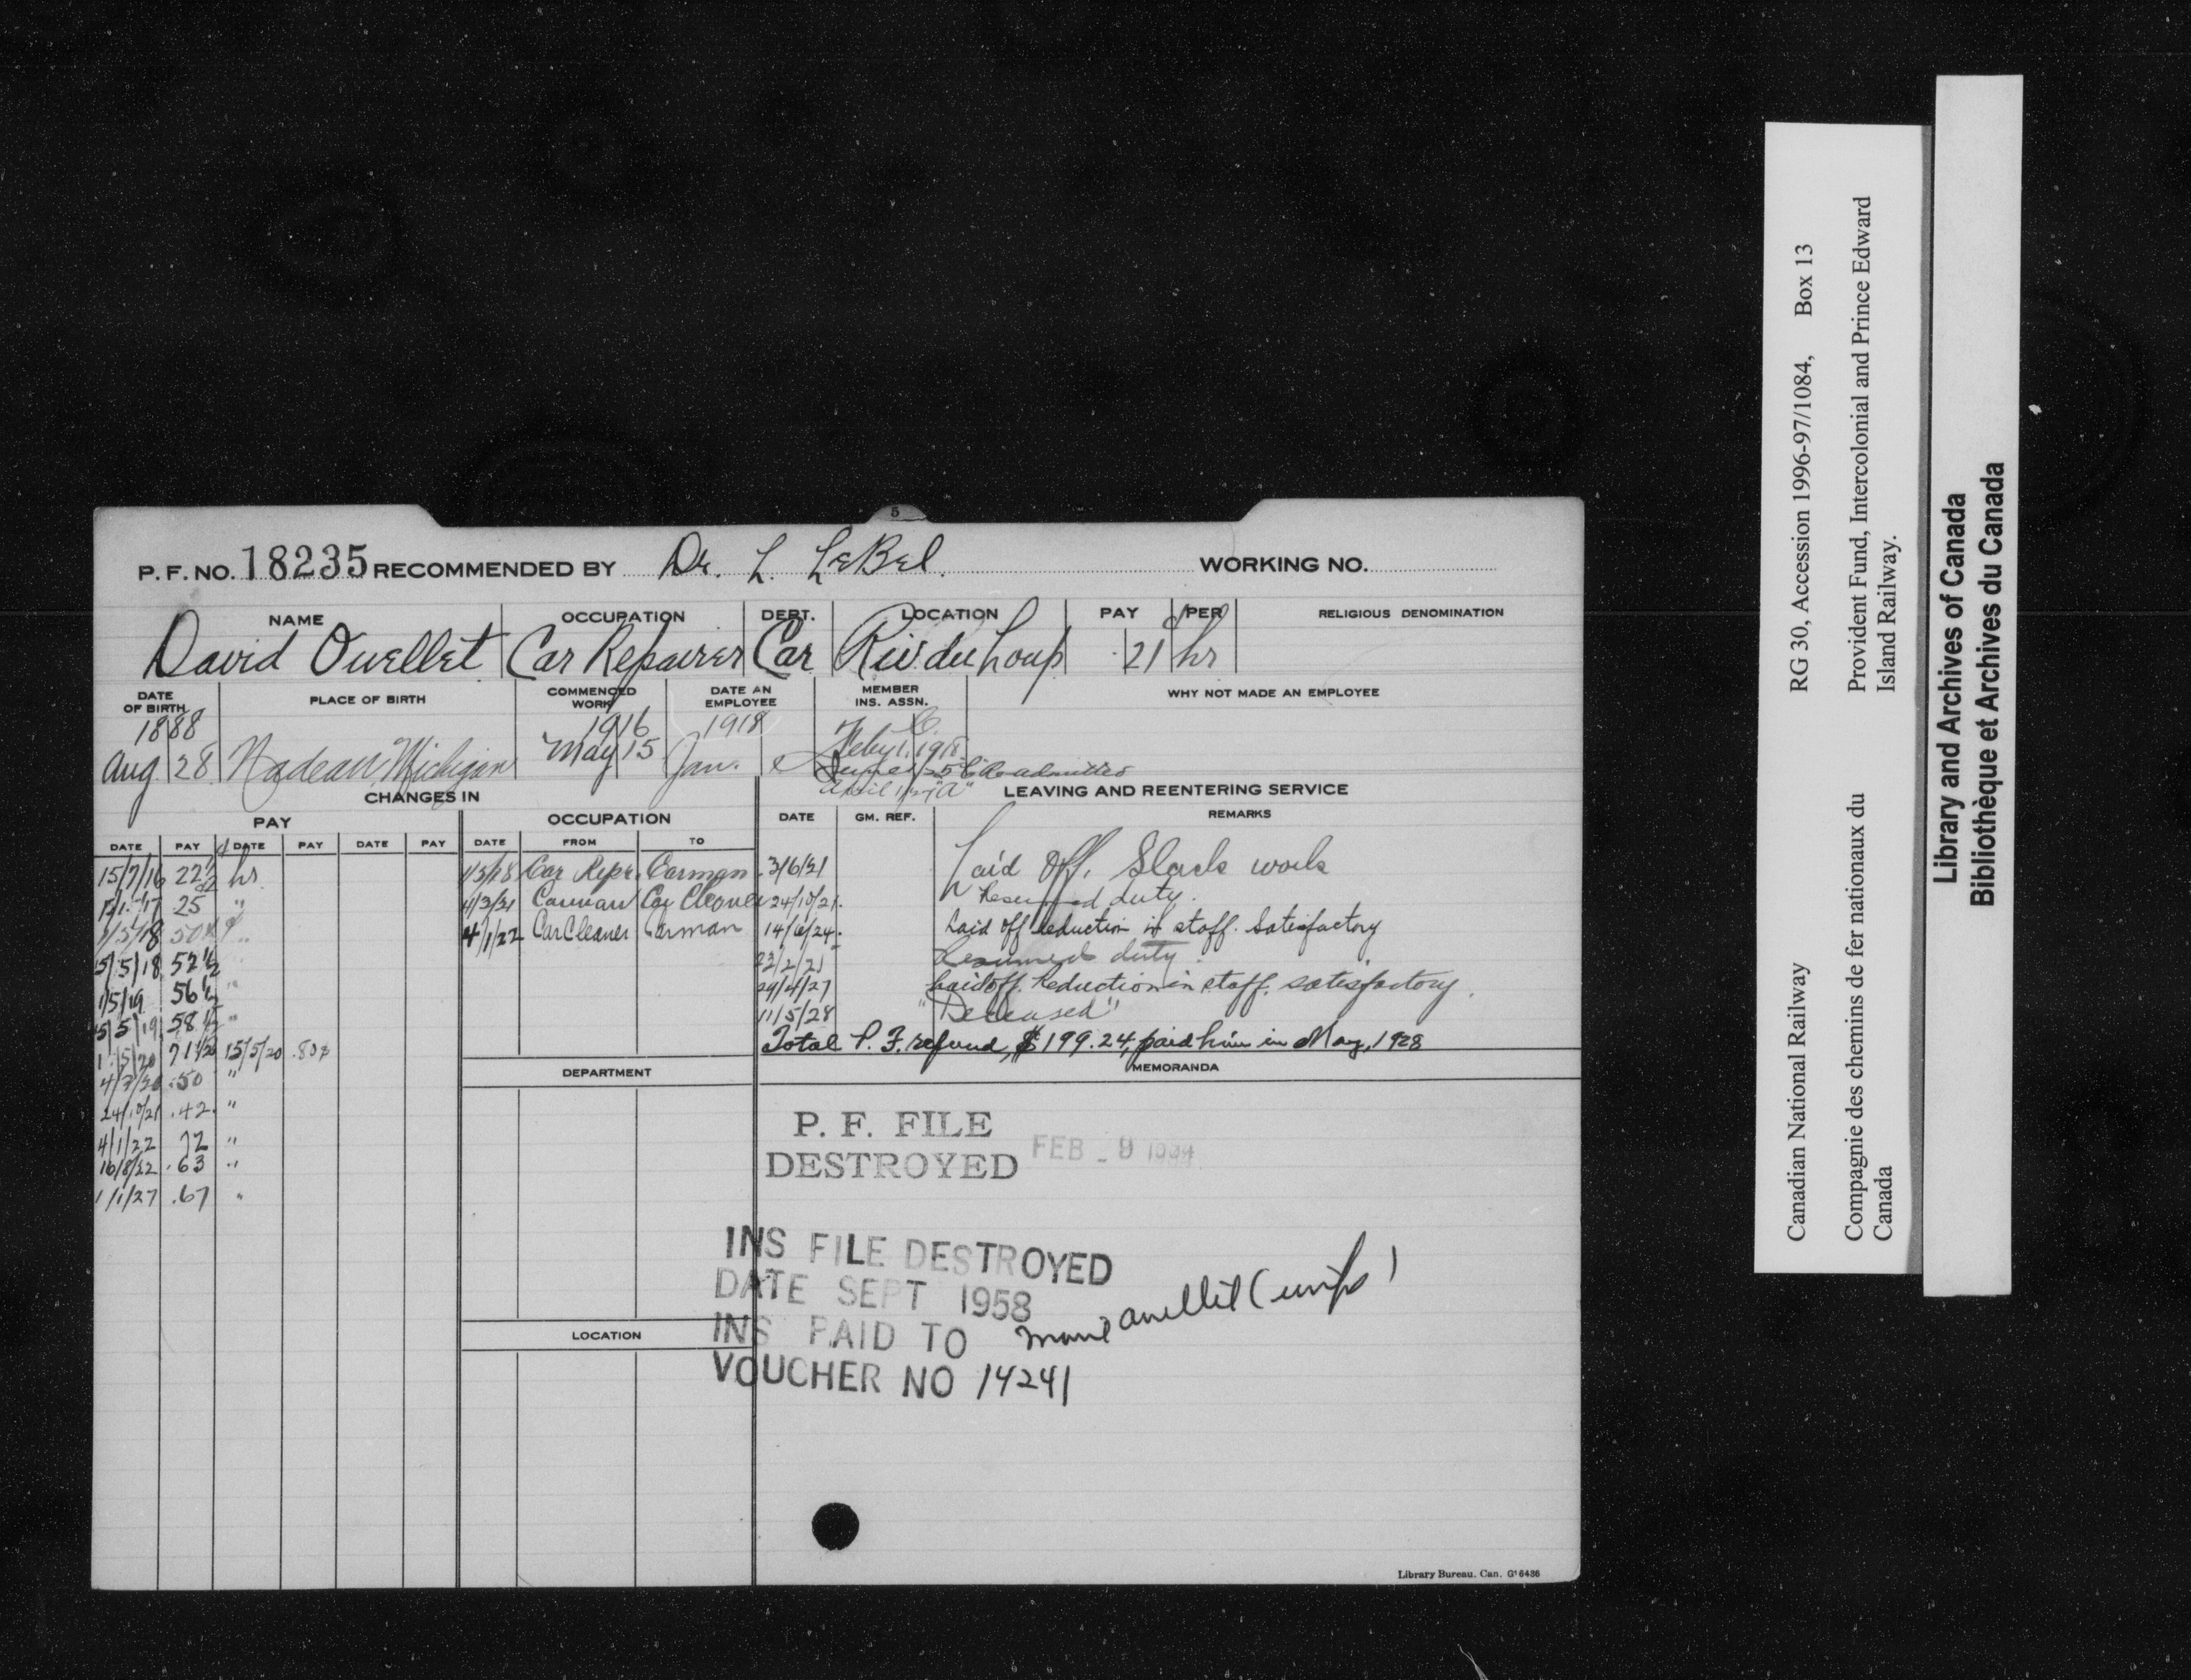 5
P. F. NO. 18235 RECOMMENDED BY Dr. L. LeBel. WORKING NO.
NAME OCCUPATION DEPT. LOCATION PAY PER RELIGIOUS DENOMINATION
David Ouellet Car Repairer Car Riv. du Loup .21 hr
DATE OF BIRTH PLACE OF BIRTH COMMENCED WORK DATE AN EMPLOYEE MEMBER INS. ASSN. WHY NOT MADE AN EMPLOYEE
1888 1916 1918 C.
Aug. 28 Nadeau, Michigan May 15 Jan. Feby 1. 1918
Readmitted
April "A"
CHANGES IN LEAVING AND REENTERING SERVICE
PAY OCCUPATION DATE GM. REF. REMARKS
DATE PAY DATE PAY DATE PAY DATE FROM TO
15/7/16 22½ hr. 1/5/18 Car Repr. Carman 3/6/21 Laid Off. Slack work
25 " Carman Car Cleaner 24/10/21. Resumed duty.
1/5/18 50 4/1/22 Car Cleaner Carman 14/6/24. Laid off reduction in staff. Satisfactory
15/5/18 52½ " Resumed duty.
1/5/19 56½ " Laid off. Reduction in staff. satisfactory.
15/5/19 58½ " 11/5/28 "Deceased"
Total P. F. refund, $199.24, paid him in May, 1928
15/5/20 .80
.50 " DEPARTMENT MEMORANDA
24/10/21 .42. "
4/1/22 72 "
16/8/22 .63 "
1/1/27 .67 "
P. F. FILE
DESTROYED FEB - 9 1934
INS FILE DESTROYED
DATE SEPT 1958
LOCATION
INS PAID TO
VOUCHER NO 14241
Library Bureau. Can. G¹6436
Canadian National Railway RG 30, Accession 1996-97/1084, Box 13
Compagnie des chemins de fer nationaux du Canada
Provident Fund, Intercolonial and Prince Edward Island Railway.
Library and Archives of Canada
Bibliothèque et Archives du Canada